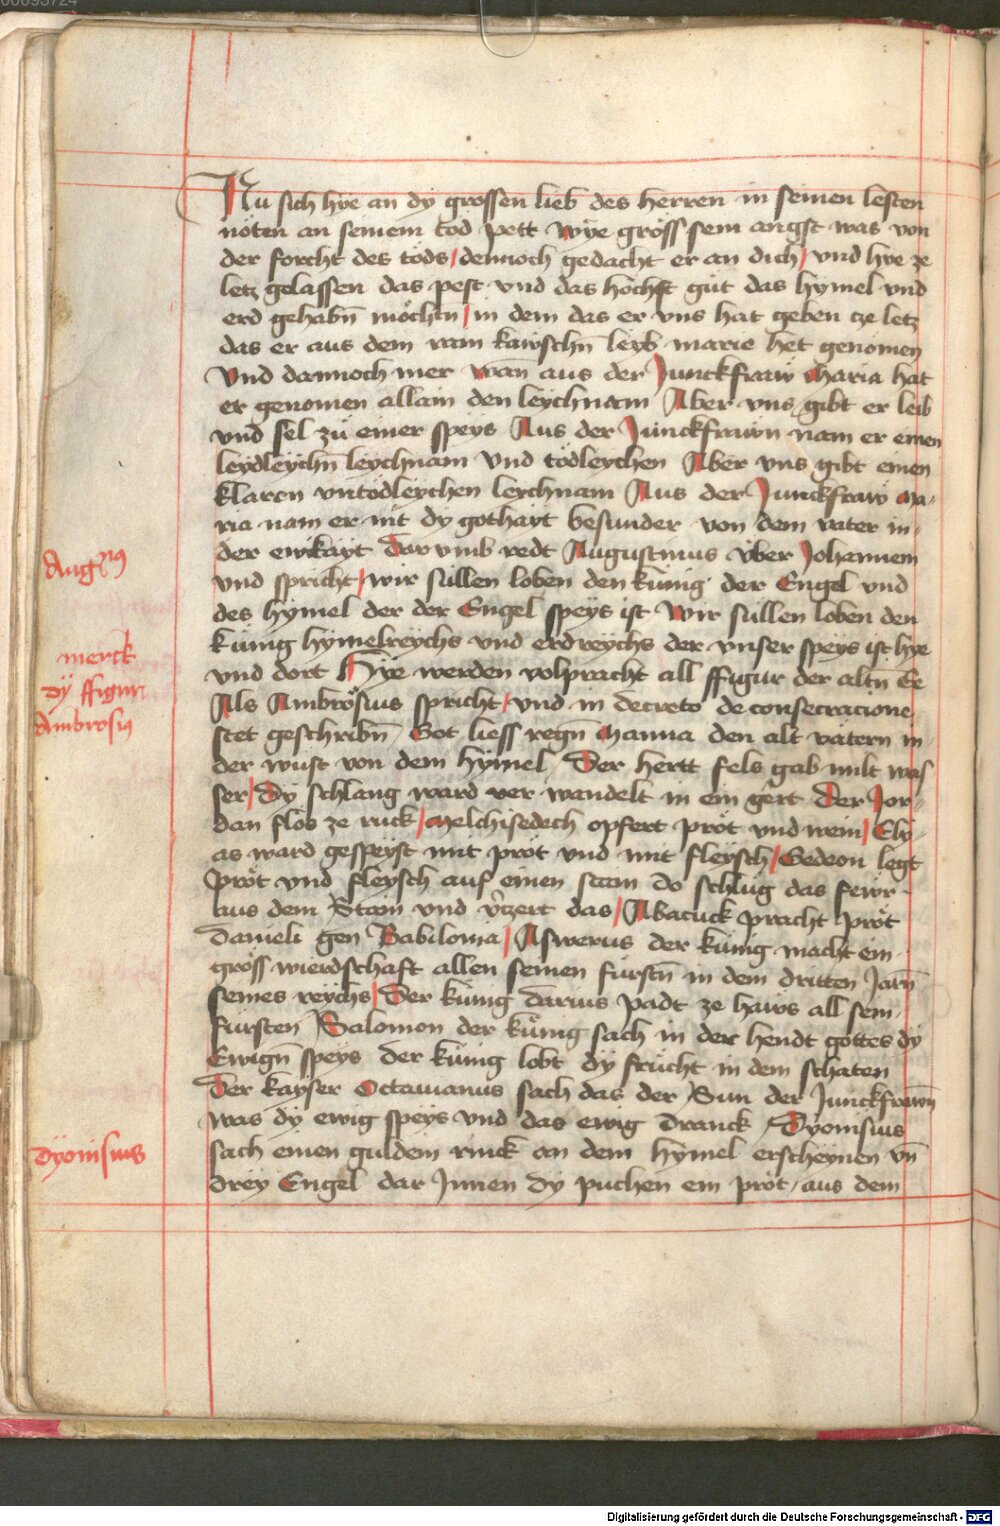 Nu sich hye an dy grossen lieb des herren in seinen lesten
nöten an seinem tod pett wye gröss sein angst was von
der forcht des töds / dennoch gedacht er an dich / vnd hye ze
letz gelassen das pest vnd das höchst güt das hymel vnd
erd gehabn̄ möchtn / in dem das er vns hat geben cze letz
das er aus dem rain kawschn̄ leyb marie het genomen
Vnd dannoch mer wan̄ aus der Junckfraw Maria hat
er genomen allain den leychnam Aber vns gibt er leib
vnd sel zü einer speys Aus der Junckfrawn nam er einen
leydleychn̄ leychnam Vnd tödleychen Aber vns gibt einen
klaren vntödleychen leychnam Aus der Junckfraw Ma-
ria nam er nit dy gothayt besunder von dem vater in
der ewikayt Dar vmb redt Augustinus über Johannem
vnd spricht / wir süllen loben den künig der Engel vnd
des hymel der der Engel speys ist Wir süllen loben den
künig hymelreychs vnd erdreychs der vnser speys ist hye
vnd dort Hye werden volpracht all ffigur der altn Ee
Als Ambrösius spricht / vnd in decreto de consecracione
stet geschribn̄ Got liess regn̄ Manna den alt vätern in
der wüst von dem hymel / Der hertt fels gab milt was
ser / Dy schlang ward ver wandelt in ein gert Der Jor-
dan flos ze ruck / Melchisedech opfert pröt vnd wein / Ely-
as ward gespeyst mit pröt vnd mit fleysch / Gedeon legt
pröt vnd fleysch auf einen stain do schlüg das fewr
aus dem Stain vnd v̄czert das / Abacuck pracht pröt
Danieli gen Babilonia / Aswerus der künig macht ein
gröss wierdschaft allen seinen fürstn̄ in dem dritten Jarn̄
seines reychs / Der künig Darius padt ze haws all sein
fürsten Salomon der künig sach in der hendt gottes dy
Ewign̄ speys der künig lobt dy frücht in dem schaten
Der kayser Octauianus sach das der Sun der Junckfrawn̄
was dy ewig speys vnd das ewig dranck / Dyonisius
sach einen guldein rinck an dem hymel erscheynen vn̄
drey Engel dar Jnnen dy puchen ein pröt / aus dem
Aug9
merck
dÿ ffigur
Ambrosiꝰ
Dÿonisius
Digitalisierung gefördert durch die Deutsche Forschungsgemeinschaft - DFG